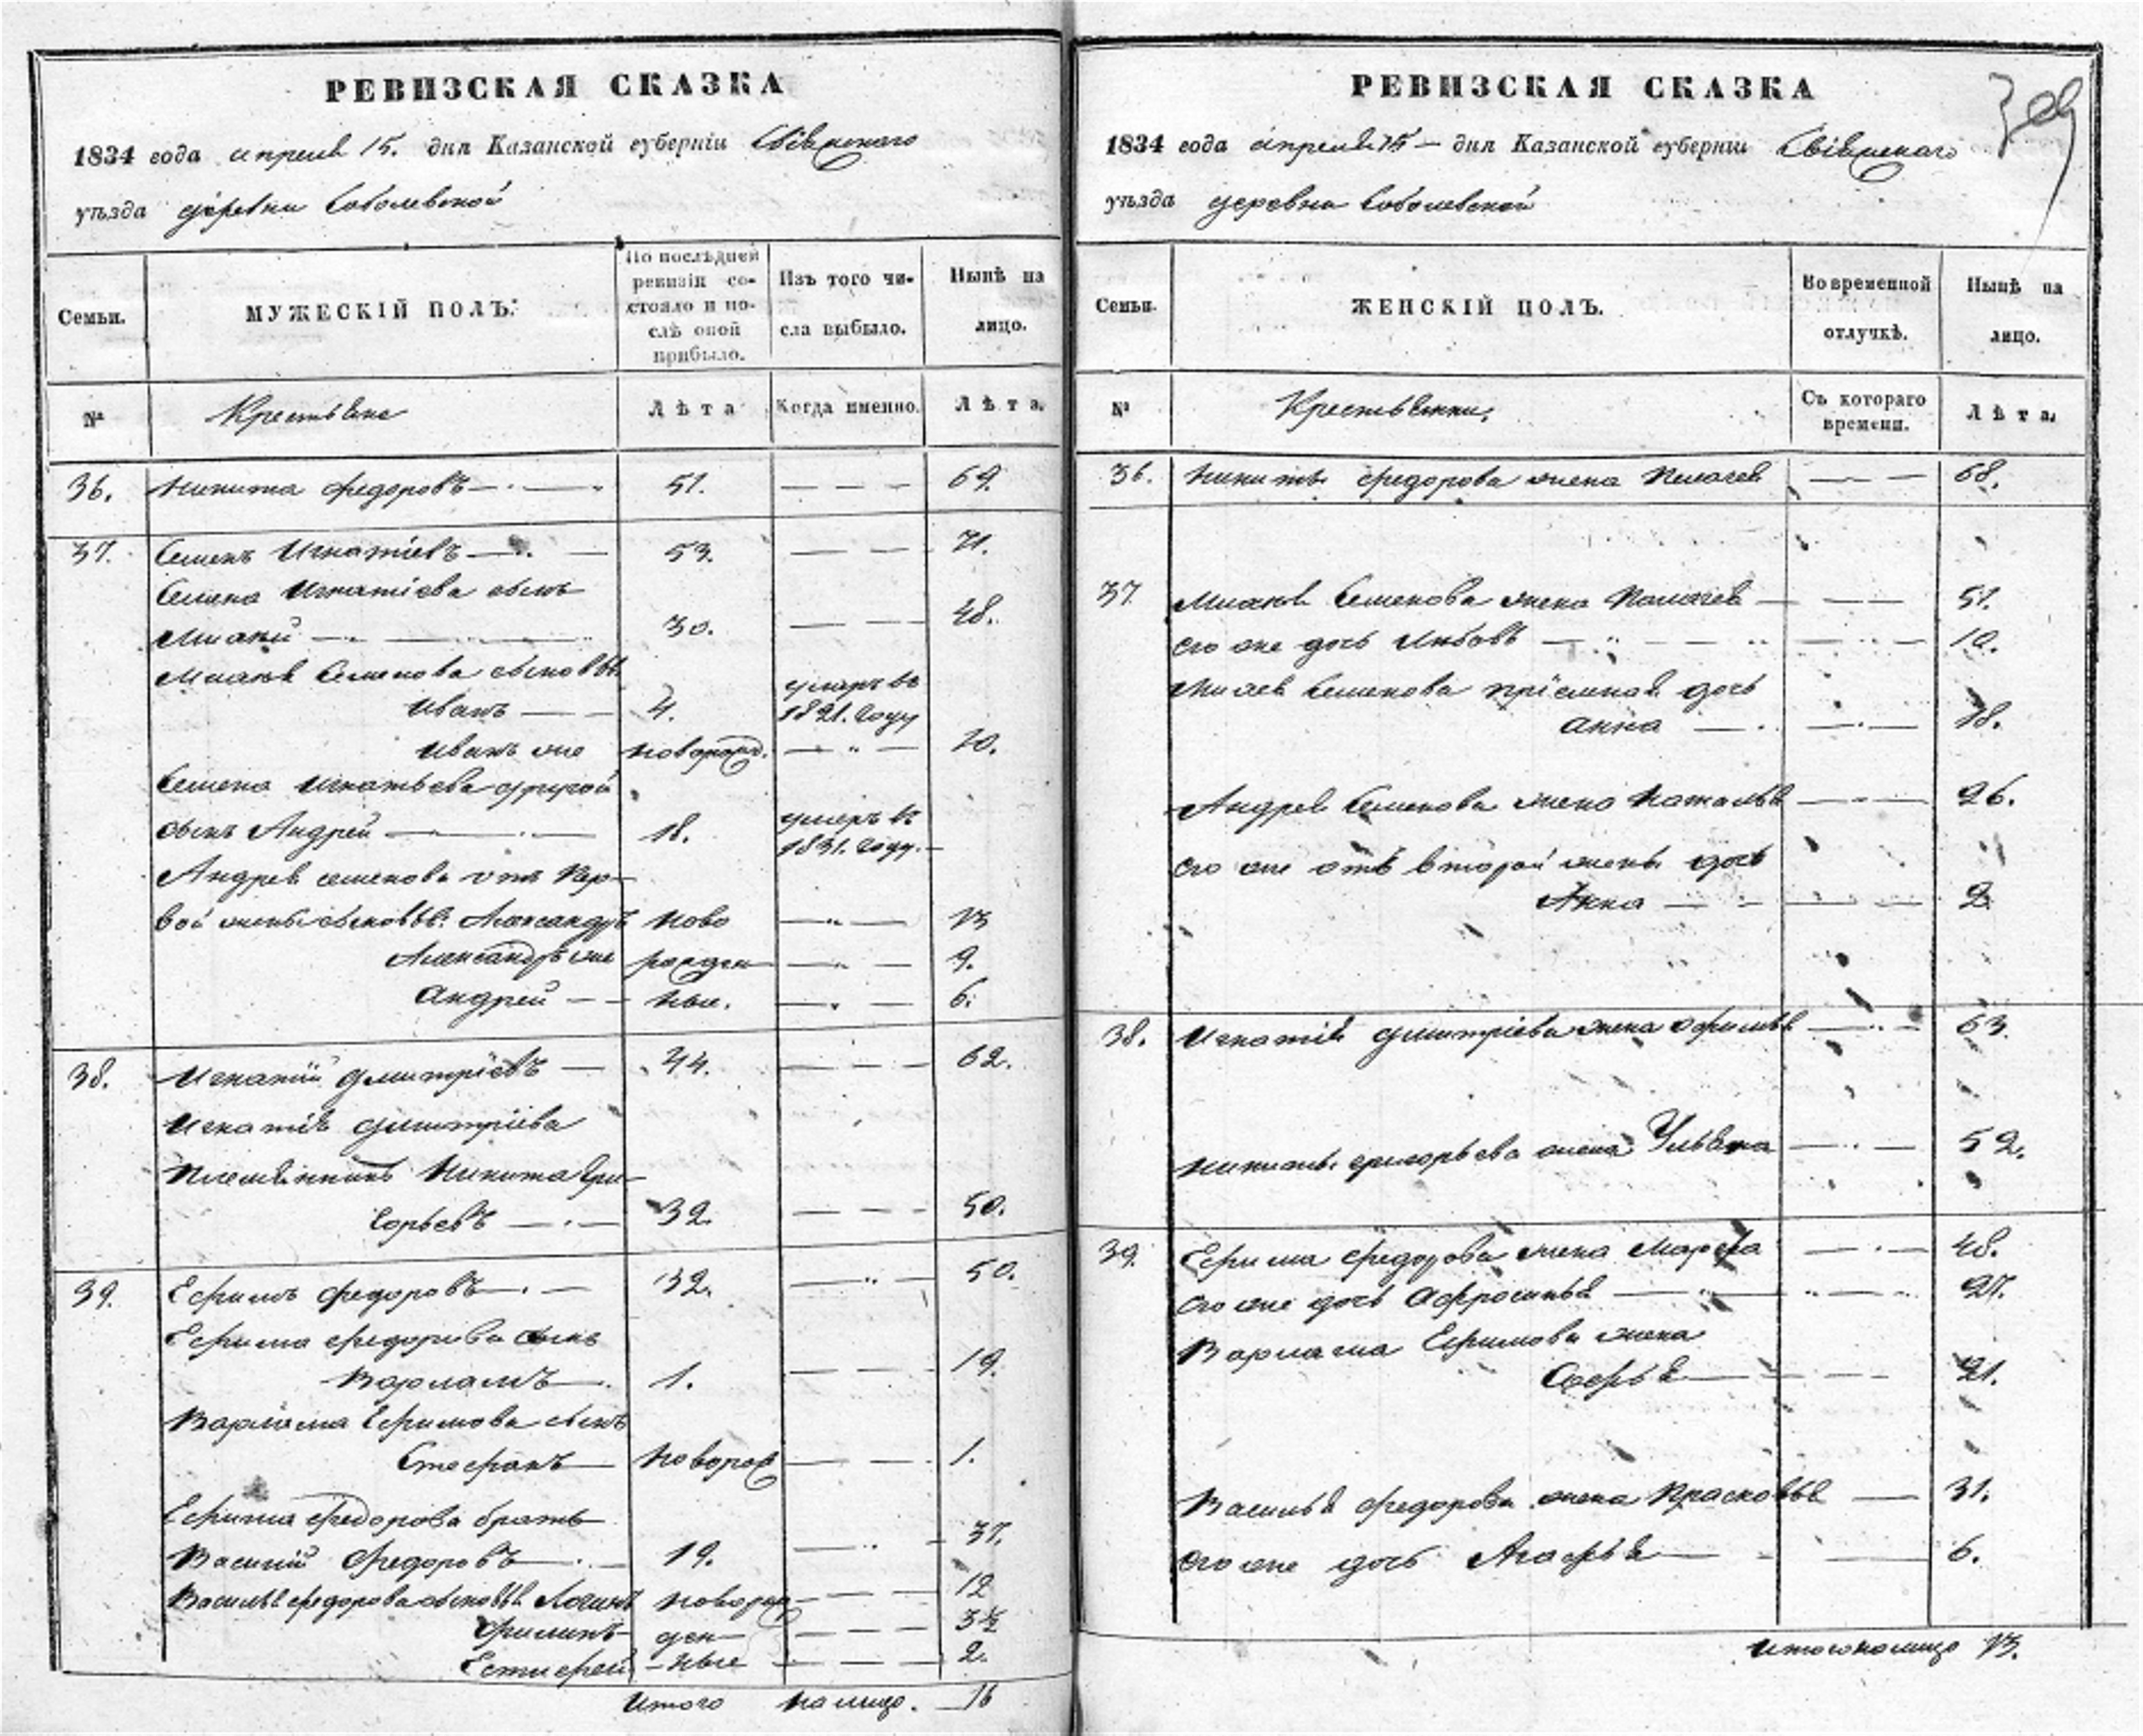 РЕВИЗСКАЯ СКАЗКА
1834 года апреля 15. дня Казанской губерніи Свіяжскаго
уѣзда деревни Соболевской
Семьи.
МУЖЕСКІЙ ПОЛЪ.
По послѣдней
ревизіи со-
стояло и по-
слѣ оной
прибыло.
Изъ того чи-
сла выбыло.
Нынѣ на
лицо.
№
Крестьяне
Лѣта
Когда именно.
Лѣта.
36. Никита Федоровъ 51. 69.
37. Семенъ Игнатіевъ 53. 71.
Семена Игнатіева сынъ
30. 48.
Семенова сыновья
Иванъ 4. умеръ въ
1821. году
Иванъ же новорожд. 10.
Семена Игнатьева другой
сынъ Андрей 18. умеръ въ
1831. году.
Андрея Семенова отъ пер-
вой жены сыновья: Александръ ново 13
Александръ же рожден 9.
Андрей ные. 6.
38. Игнатій Дмитріевъ 44. 62.
Игнатія Дмитріева
племянникъ Никита Гри-
горьевъ 32. 50.
39. Ефимъ Федоровъ 32. 50.
Ефима Федорова сынъ
Варламъ 1. 19.
Варлама Ефимова сынъ
Стефанъ новорож 1.
Ефима Федорова братъ
Василій Федоровъ 19. 37.
Василья Федорова сыновья Логинъ новорож 12
Филипъ ден 3½
Естифей ные 2.
Итого на лицо. 16
РЕВИЗСКАЯ СКАЗКА
1834 года апреля 15 дня Казанской губерніи Свіяжскаго
уѣзда деревни Соболевской
Семьи.
ЖЕНСКІЙ ПОЛЪ.
Во временной
отлучкѣ.
Нынѣ на
лицо.
№
Крестьянки;
Съ котораго
времени.
Лѣта.
36. Никиты Федорова жена Пелагея 68.
37. Семенова жена Палагея 51.
его же дочь Любовь 10.
Семенова пріемная дочь
Анна 18.
Андрея Семенова жена Наталья 26.
его же отъ второй жены дочь
Анна 2
38. Игнатія Дмитріева жена Офимья 63.
Никиты Григорьева жена Ульяна 52.
39. Ефима Федорова жена Марфа 48.
его же дочь Афросинья 27.
Варлама Ефимова жена
Софья 21.
Василья Федорова жена Прасковья 31.
его же дочь Агафья 6.
Итого на лицо 13.